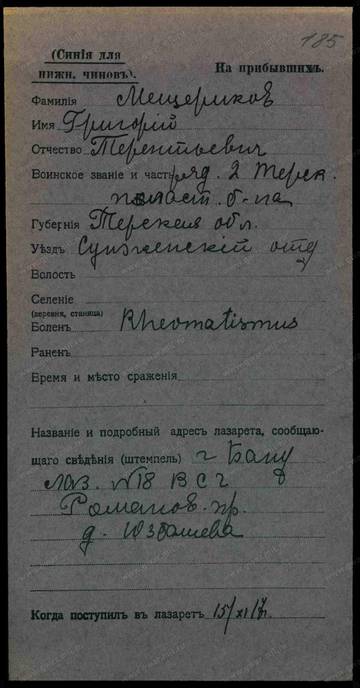 185
(Синія для
нижн. чиновъ).
На прибывшихъ.
Фамилія Мещеряков
Имя Григорій
Отчество Терентьевич
Воинское званіе и часть ряд. 2 Терск.
пласт. б-на
Губернія Терская обл.
Уѣздъ Сунженскій отд
Волость
Селеніе
(деревня, станица)
Боленъ Rheomatismus
Раненъ
Время и мѣсто сраженія
Названіе и подробный адресъ лазарета, сообщаю-
щаго свѣдѣнія (штемпель) г Баку
Лаз. №18 В С Г
Романов. пр.
д. Юзбашева
Когда поступилъ въ лазаретъ 15/XI